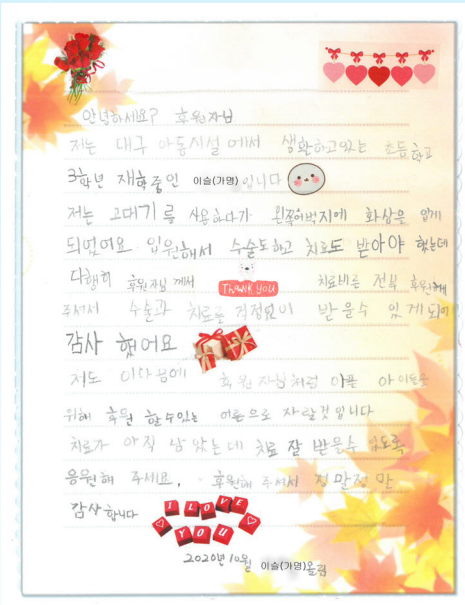 안녕하세요? 후원자님
저는 대구 아동시설에서 생활하고있는 초등학교
3학년 재학중인 이슬(가명)입니다
저는 고대기를 사용하다가 왼쪽허벅지에 화상을 입게
되었어요 입원해서 수술도하고 치료도 받아야 했는데
다행히 후원자님께서 THANK YOU 치료비를 전부 후원해
주셔서 수술과 치료를 걱정없이 받을수 있게되어
감사 했어요
저도 이다음에 후원자님처럼 아픈 아이들을
위해 후원 할수있는 어른으로 자랄것입니다
치료가 아직 남았는데 치료 잘 받을수 있도록
응원해 주세요, 후원해주셔서 정말정말
감사합니다
I LOVE
YOU
2020년 10월 이슬(가명)올림